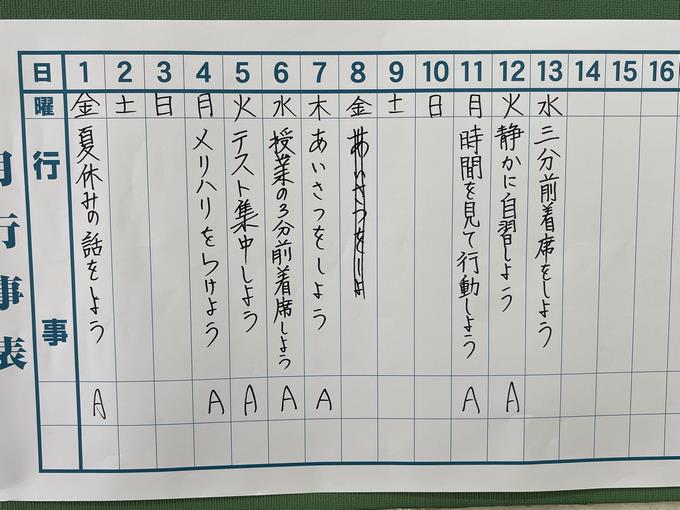 月行事表
日 1 2 3 4 5 6 7 8 9 10 11 12 13 14 15 16
曜 金 土 日 月 火 水 木 金 土 日 月 火 水
行事
夏休みの話をしよう
メリハリをつけよう
テスト集中しよう
授業の3分前着席しよう
あいさつをしよう
時間を見て行動しよう
静かに自習しよう
三分前着席をしよう
A A A A A A A